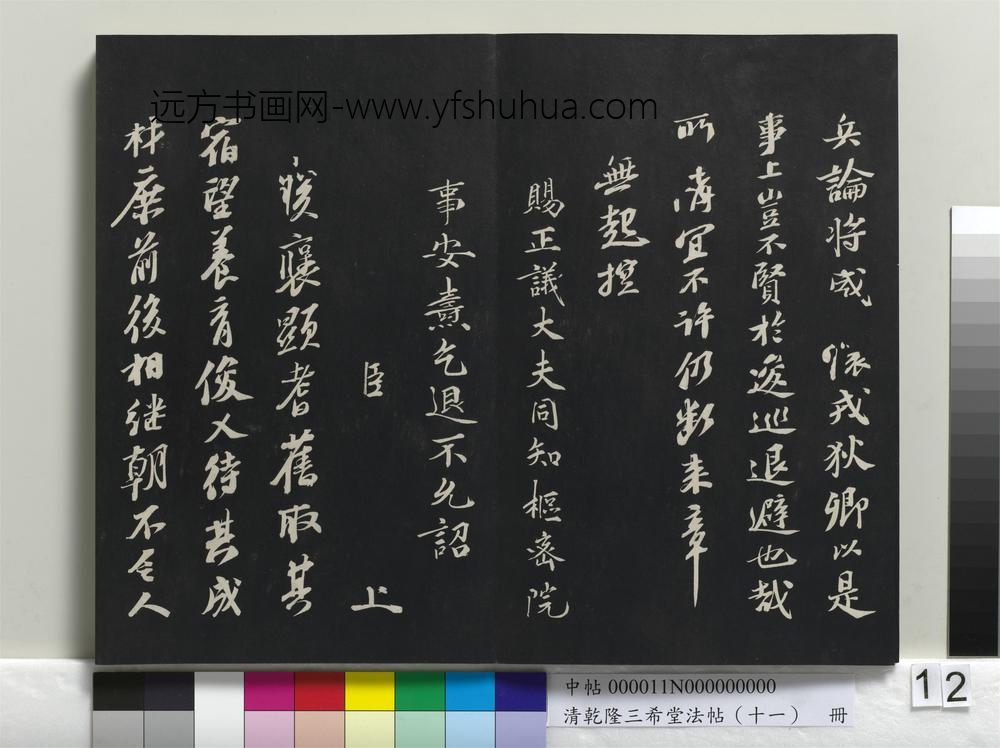 远方书画网-www.yfshuhua.com
兵論將成 懷戎狄卿以是
事上豈不賢於逡巡退避也哉
所請宜不許仍斷来章
無起
賜正議大夫同知樞密院
事安燾乞退不允詔
臣 上
褒顯耆舊取其
宿望養育俊乂待其成
材庶前後相継朝不乏人
中帖 000011N000000000
清乾隆三希堂法帖（十一） 冊
12